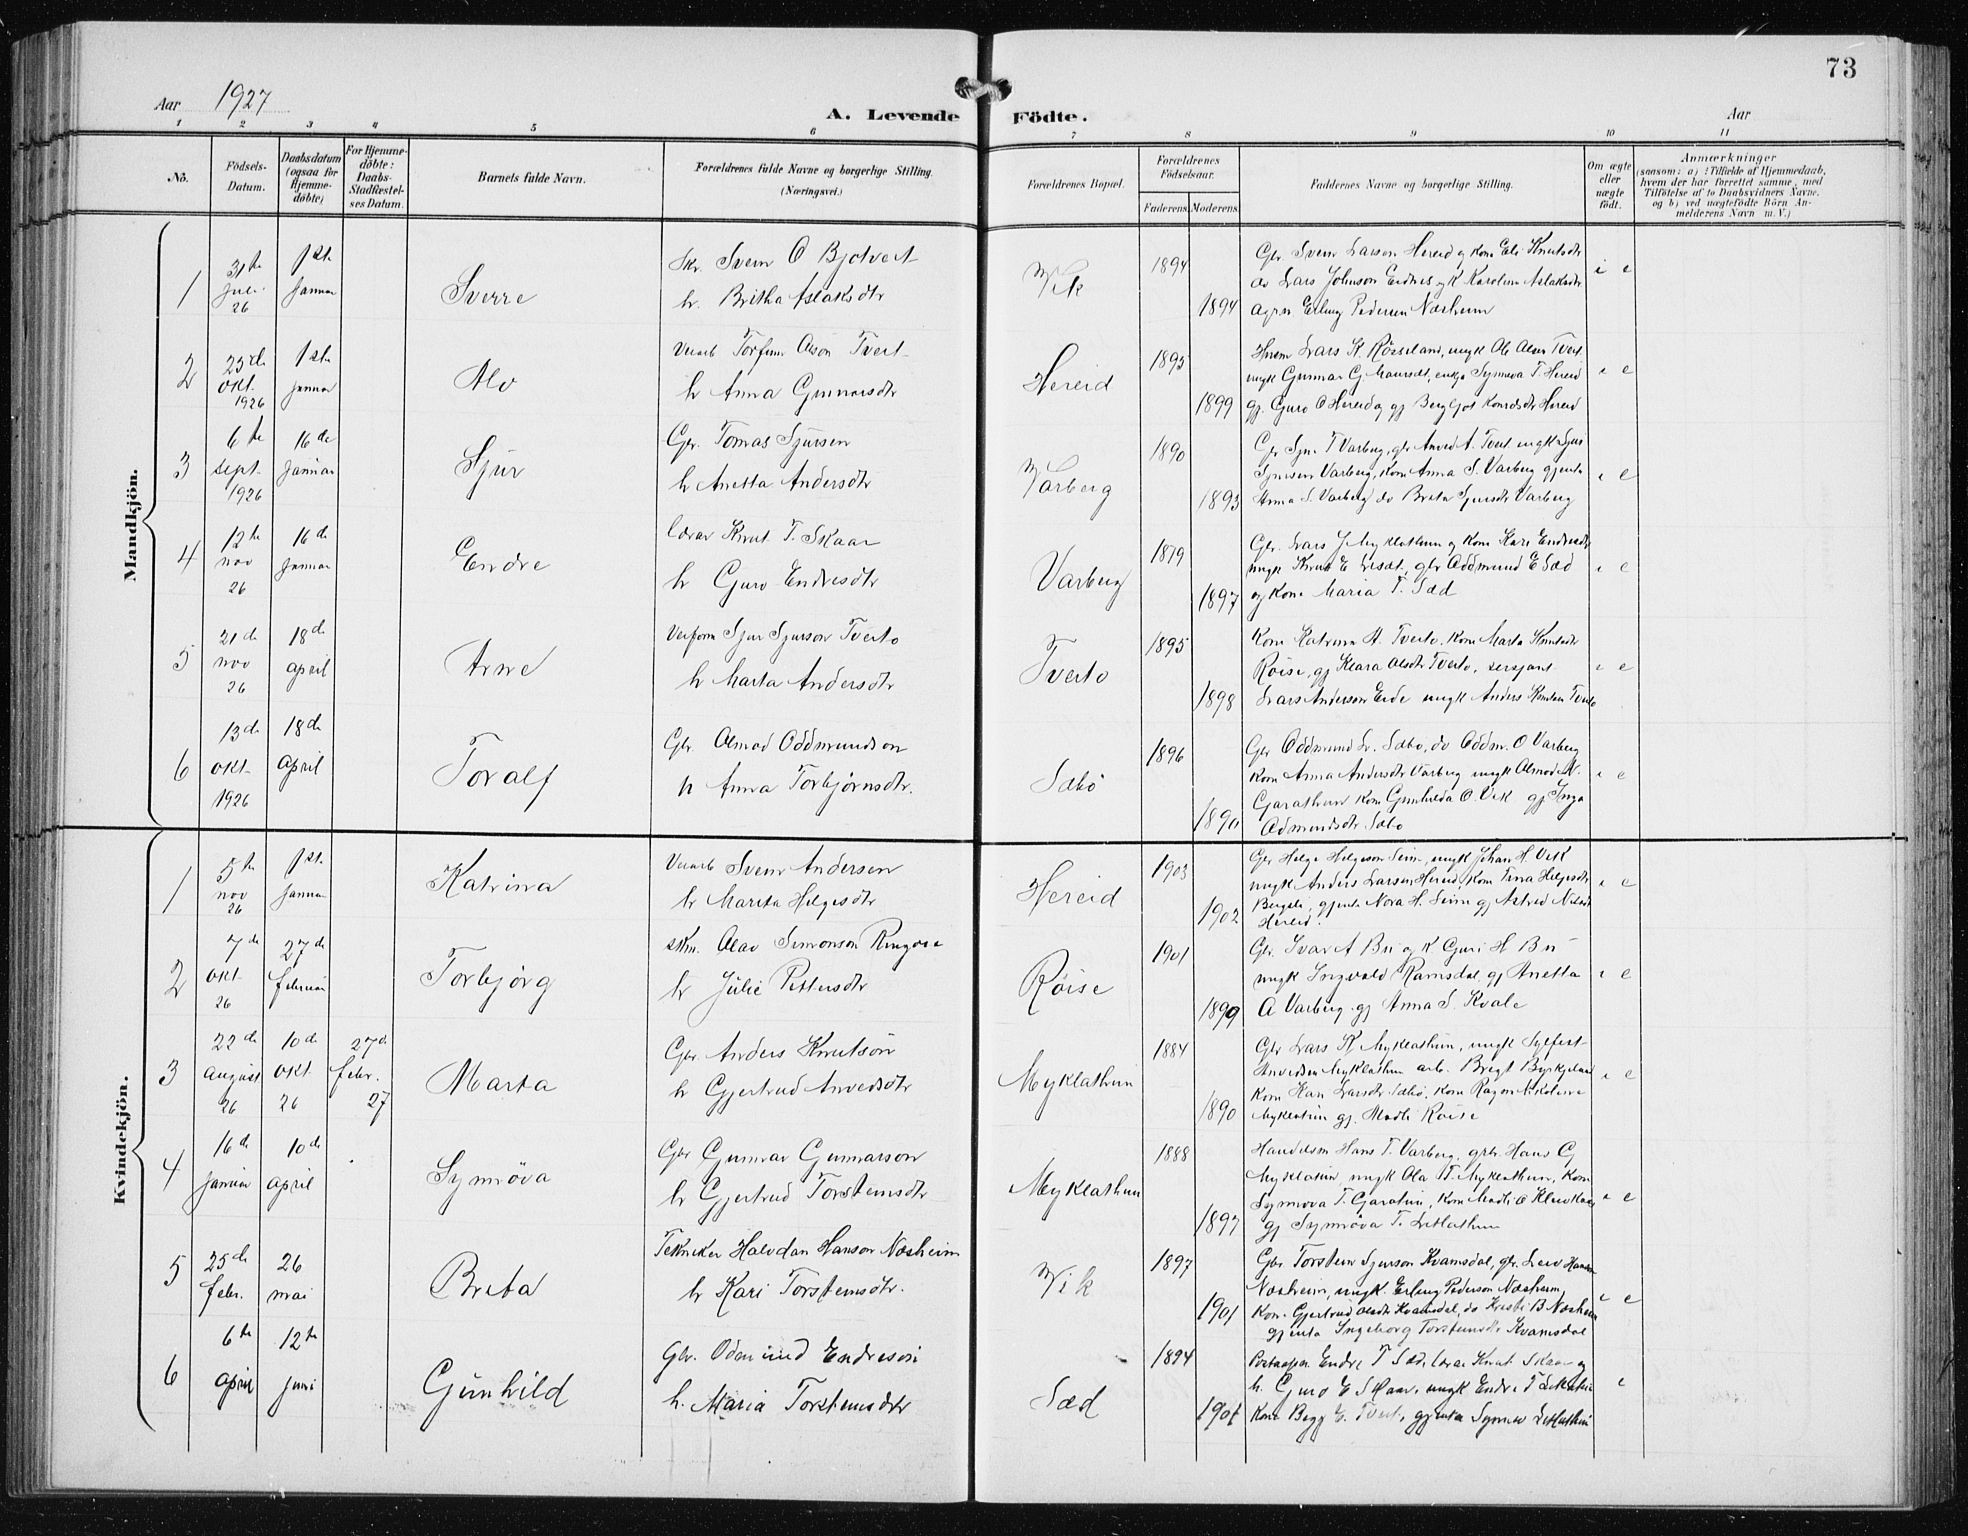 73
Aar 1927
A. Levende Födte.
Aar
1 2 3 4 5 6 7 8 9 10 11
No.
Födsels-
Datum.
Daabsdatum
(ogsaa for
Hjemme-
döbte)
For Hjemme-
döbte:
Daabs-
Stadfæstel-
ses Datum.
Barnets fulde Navn.
Forældrenes fulde Navne og borgerlige Stilling.
(Næringsvei.)
Forældrenes Bopæl.
Forældrenes
Födselsaar.
Faderens
Moderens
Faddernes Navne og borgerlige Stilling.
Om ægte
eller
uægte
födt.
Anmærkninger
(saasom: a) i Tilfælde af Hjemmedaab,
hvem der har forrettet samme, med
Tilföielse af to Daabsvidners Navne,
og b) ved uægtefödte Börn An-
melderens Navn m. V.)
Mandkjön.
1
31te juli 26
1ste Januar
Sverre
Skr. Svein O Bjotveit
h. Britha Aslaksdtr
Vik
1894
1894
Gbr Svein Larson Hereid og kone Eli Knutsdtr
av Lars Johnson Eidnes og K Karolina Aslaksdtr
Agnes Erling Pedersen Næsheim
e
2
23de Okt. 1926
1ste Januar
Alv
Torfinn Olson Tveit
h Anna Gunnarsdtr
Hereid
1895
1899
Lars K. Røiseland, ungk Ole Olsen Tveit
ungk Gunnar G. Maursæt, enkja Synnøva T. Hereid
gj. Guro O Hereid og gj Bergljot Konradsdtr Hereid
e
3
6te sept. 1926
16de Januar
Sjur
Gbr. Tomas Sjursen
h Anetta Andersdtr
Varberg
1890
1893
T Varberg, gbr Anved A. Tveit ungk Sjur
Sjursen Varberg, Kone Anna S. Varberg gjenta
Anna S. Varberg do Brita Sjursdtr Varberg
e
4
12te nov 26
16de Januar
Endre
Lærar Knut T. Skaar
h Guro Endresdtr
Varberg
1879
1897
Gbr. Lars J Myklathun og Kone Kari Endresdtr
ungk Knut E gbr Oddmund E Sæd
og Kone Maria T. Sæd
e
5
21de nov 26
18de april
Arne
Sjur Sjurson Tveito
h Marta Andersdtr
Tveito
1895
1898
Kone Katrina A. Tveito, Kone Marta Knutsdtr
Røise, gj Klara Olsdtr Tveito, sersjant
Lars Anderson Eide ungk Anders Knutsen Tveito
e
6
13de okt. 1926
18de april
Toralf
Gbr. Almod Oddmundson
h Anna Torbjørnsdtr.
Sæbø
1896
Gbr Oddmund L. Sæbø, do Oddm. O Varberg
Kone Anna Andersdtr Varberg ungk Almod N.
Garathun Kone Gunhilda O. Vik gj Inga
Odmundsdtr Sæbø
e
Kvindekjön.
1
5te nov 26
1ste Januar
Katrina
Svein Andersen
h Marita Helgesdtr
Hereid
1903
1902
Gbr Helge Helgeson Seim, ungk Johan H. Vik
ungk Anders Larsen Hereid, Kone Helgesdtr
gjenta Nora H. Seim gj Astrid
Hereid.
e
2
7de okt. 26
27de februar
Torbjørg
Olav Simonson Ringøie
h Julie Pettersdtr
Røise
1901
1899
Gbr. Ivar A Bu og K Guri H Bu
ungk Ingvald Ramsdal gj Anetta
A Varberg gj Anna S. Kvale
e
3
22de august 26
10de okt 26
27de febr. 27
Marta
Gbr. Anders Knutson
h Gjertrud Anvedsdtr
Myklathun
1884
1890
Gbr Lars K Myklathun, ungk Sylfest
Anvedsen Myklathun arb. Brigt Byrkjeland
Kone Kari Larsdtr Sæbø, Kone
Myklathun gj. Madli Røise
e
4
16de januar
10de april
Synnöva
Gbr Gunnar Gunnarson
h Gjertrud Torsteinsdtr
Myklathun
1888
1897
Handelsm Hans T. Varberg, gbr. Hans G
Myklathun, ungk Ola T. Myklathun, Kone
Synnova T. Garatun, Kone Madli O
gj Synnöva T. Litlathun
e
5
25de febr.
26 mai
Brita
Tekniker Halvdan Hanson Næsheim
h Kari Torsteinsdtr.
Vik
1897
1901
Gbr Torstein Sjurson Kvamsdal, gbr. Hansen
Næsheim, ungk. Erling Pederson Næsheim,
Kone Gjertrud Olsdtr Kvamsdal, do Kristi B Næsheim
gjenta Ingeborg Torsteinsdtr Kvamsdal
e
6
6te april
12te juni
Gunhild
Gbr. Odmund Endreson
h. Maria Torsteinsdtr
Sæd
1894
1901
Endre T Sæd, lærar Knut Skaar og
h. Guro E Skaar, ungk Endre T Litlatun
Kone E. Tveit, gjenta Synnev Litlathun
e